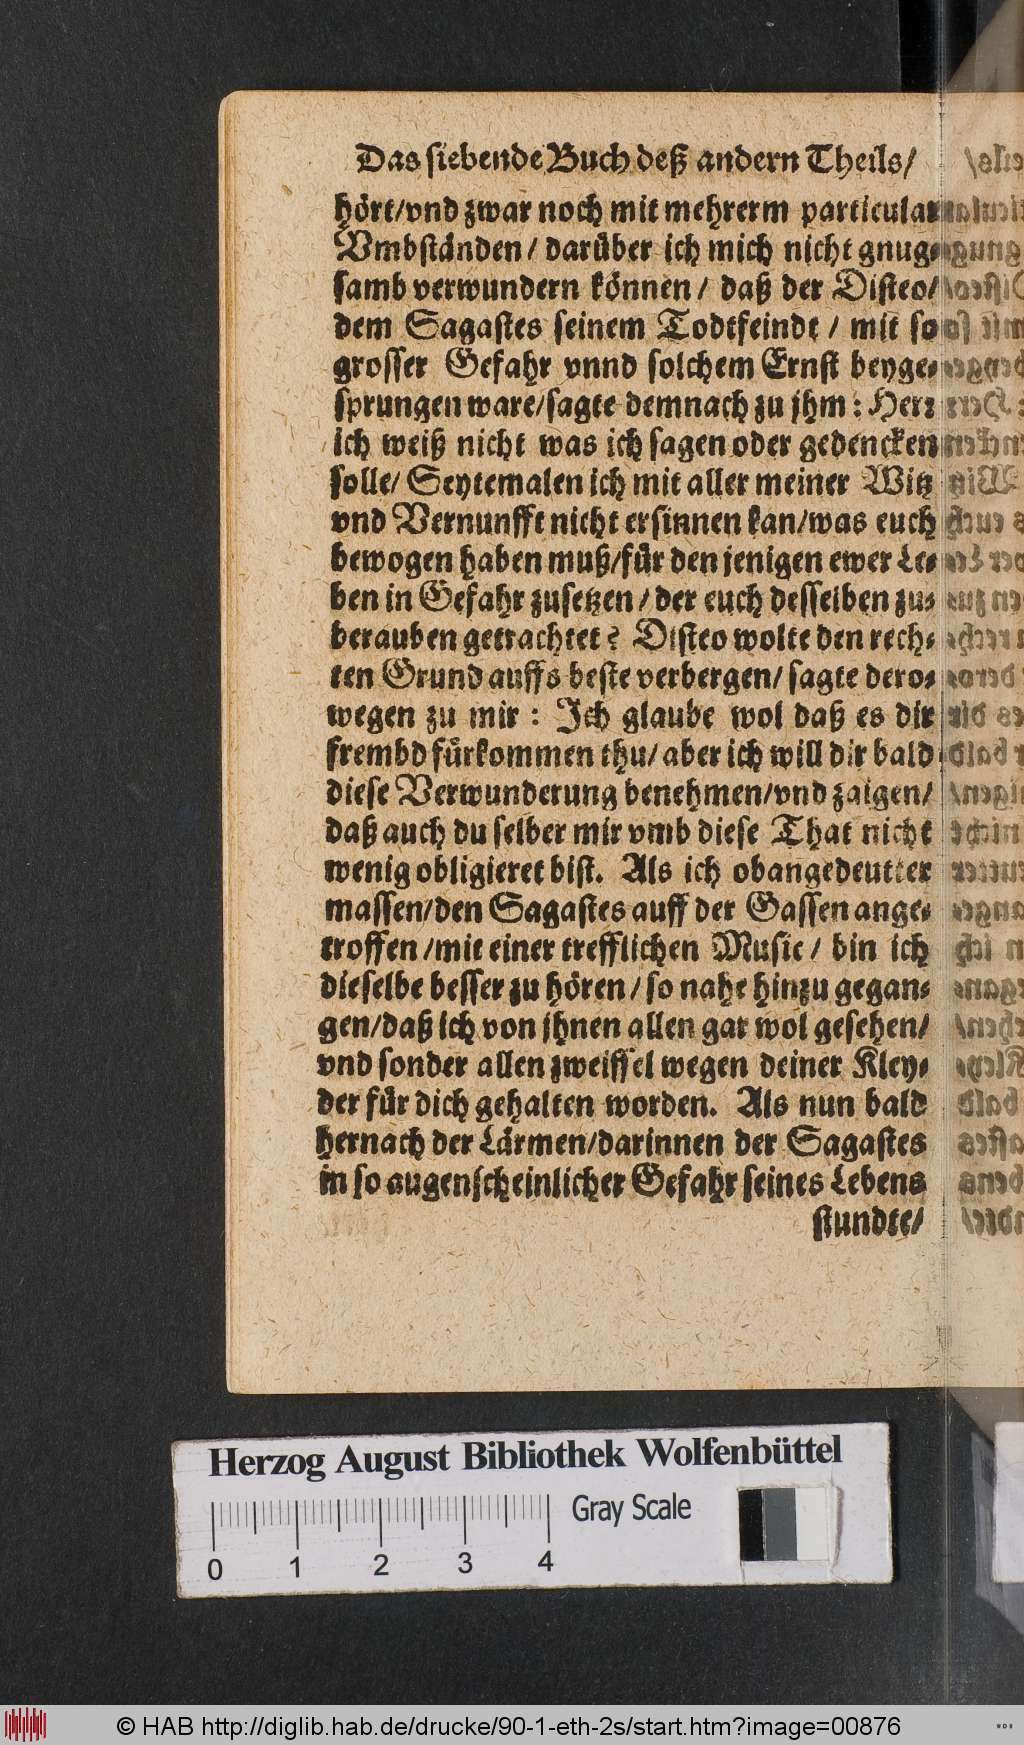 Das siebende Buch deß andern Theils/
hört/vnd zwar noch mit mehrerm particular
Vmbständen/ darüber ich mich nicht gnug⸗
samb verwundern können/ daß der Disteo/
dem Sagastes seinem Todtfeindt / mit so
grosser Gefahr vnnd solchem Ernst beyge⸗
sprungen ware/sagte demnach zu jhm: Herr
ich weiß nicht was ich sagen oder gedencken
solle/ Seytemalen ich mit aller meiner Witz
vnd Vernunfft nicht ersinnen kan/was euch
bewogen haben muß/für den jenigen ewer Le⸗
ben in Gefahr zusetzen/der euch desselben zu⸗
berauben getrachtet? Disteo wolte den rech⸗
ten Grund auffs beste verbergen/ sagte dero⸗
wegen zu mir: Ich glaube wol daß es dir
frembd fürkommen thu/ aber ich will dir bald
diese Verwunderung benehmen/vnd zaigen/
daß auch du selber mir vmb diese That nicht
wenig obligieret bist. Als ich obangedeutter
massen/den Sagastes auff der Gassen ange⸗
troffen/mit einer trefflichen Music/ bin ich
dieselbe besser zu hören/so nahe hinzu gegan⸗
gen/daß ich von jhnen allen gar wol gesehen/
vnd sonder allen zweiffel wegen deiner Kley⸗
der für dich gehalten worden. Als nun bald
hernach der Lärmen/darinnen der Sagastes
in so augenscheinlicher Gefahr seines Lebens
stundte/
Herzog August Bibliothek Wolfenbüttel
Gray Scale
0 1 2 3 4
© HAB http://diglib.hab.de/drucke/90-1-eth-2s/start.htm?image=00876